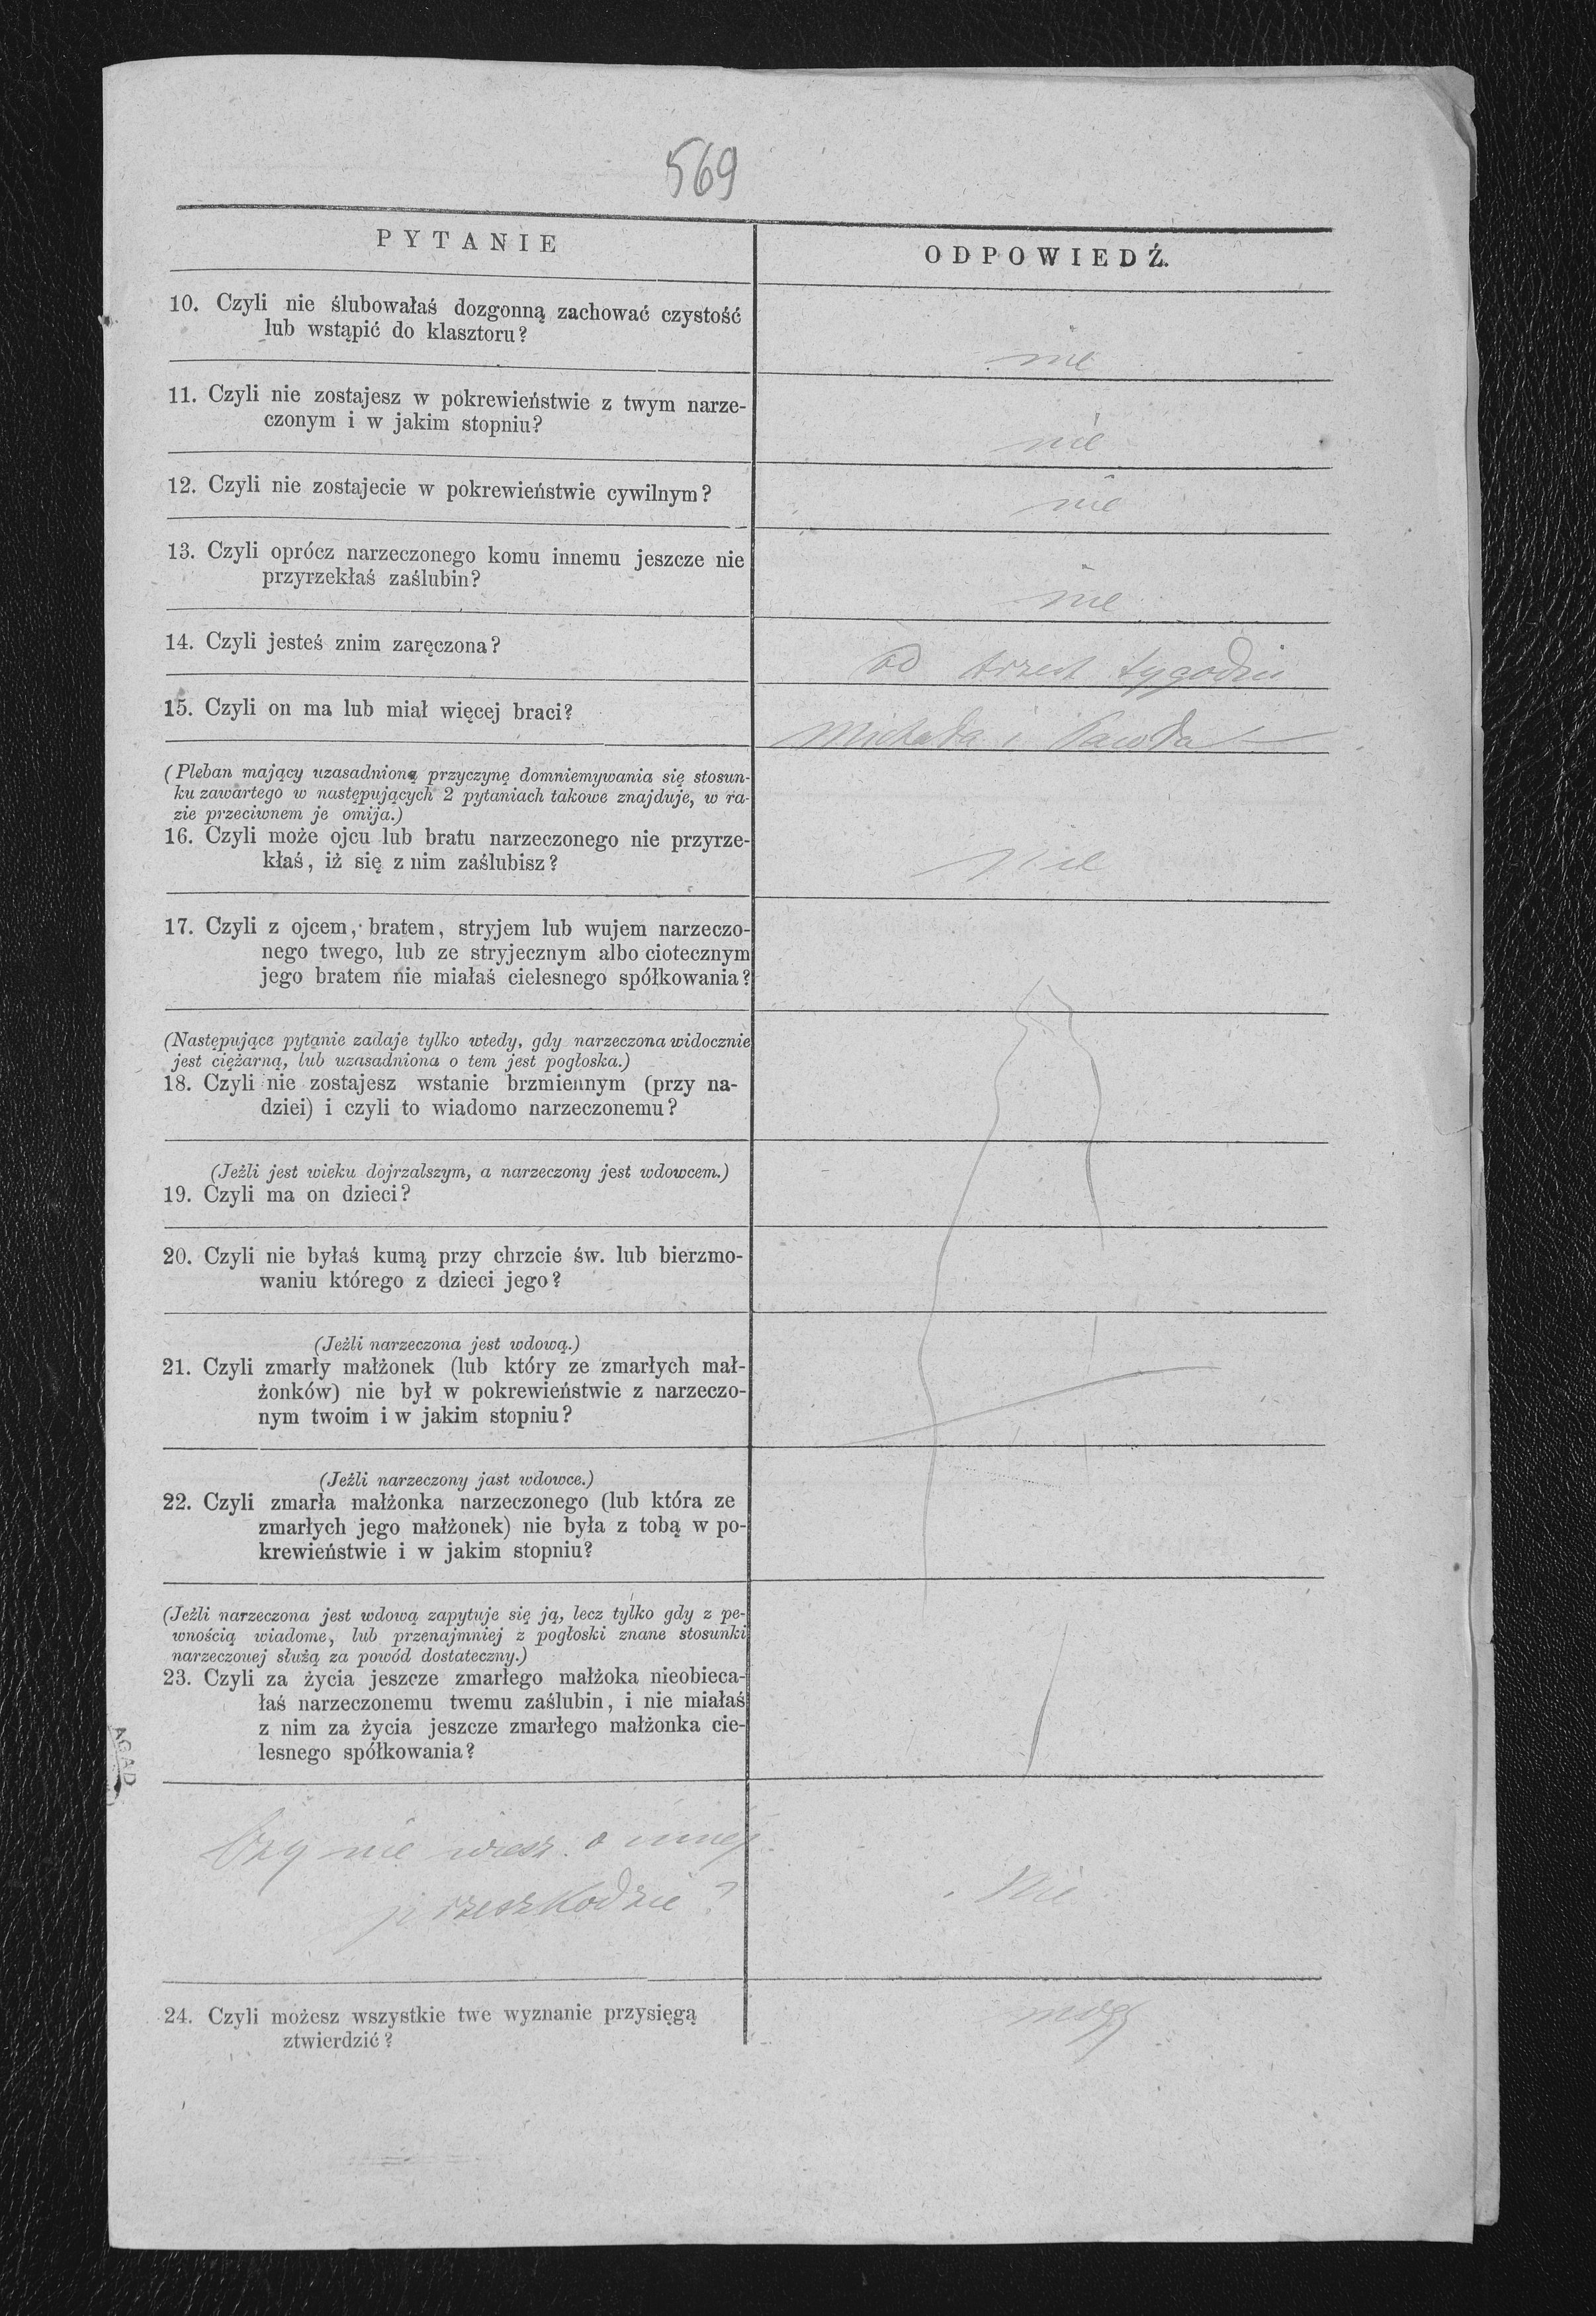 569
PYTANIE
ODPOWIEDŹ.
10. Czyli nie ślubowałaś dozgonną zachować czystość
lub wstąpić do klasztoru?
nie
11. Czyli nie zostajesz w pokrewieństwie z twym narze-
czonym i w jakim stopniu?
nie
12. Czyli nie zostajecie w pokrewieństwie cywilnym?
nie
13. Czyli oprócz narzeczonego komu innemu jeszcze nie
przyrzekłaś zaślubin?
nie
14. Czyli jesteś znim zaręczona?
od trzech tygodni
15. Czyli on ma lub miał więcej braci?
Michała i Pawła
(Pleban mający uzasadnioną przyczynę domniemywania się stosun-
ku zawartego w następujących 2 pytaniach takowe znajduje, w ra-
zie przeciwnem je omija.)
16. Czyli może ojcu lub bratu narzeczonego nie przyrze-
kłaś, iż się z nim zaślubisz?
nie
17. Czyli z ojcem, bratem, stryjem lub wujem narzeczo-
nego twego, lub ze stryjecznym albo ciotecznym
jego bratem nie miałaś cielesnego spółkowania?
(Następujące pytanie zadaje tylko wtedy, gdy narzeczona widocznie
jest ciężarną, lub uzasadniona o tem jest pogłoska.)
18. Czyli nie zostajesz wstanie brzmiennym (przy na-
dziei) i czyli to wiadomo narzeczonemu?
(Jeżli jest wieku dojrzalszym, a narzeczony jest wdowcem.)
19. Czyli ma on dzieci?
20. Czyli nie byłaś kumą przy chrzcie św. lub bierzmo-
waniu którego z dzieci jego?
(Jeżli narzeczona jest wdową.)
21. Czyli zmarły małżonek (lub który ze zmarłych mał-
żonków) nie był w pokrewieństwie z narzeczo-
nym twoim i w jakim stopniu?
(Jeżli narzeczony jast wdowce.)
22. Czyli zmarła małżonka narzeczonego (lub która ze
zmarłych jego małżonek) nie była z tobą w po-
krewieństwie i w jakim stopniu?
(Jeżli narzeczona jest wdową zapytuje się ją, lecz tylko gdy z pe-
wnością wiadome, lub przenajmniej z pogłoski znane stosunki
narzeczouej służą za powód dostateczny.)
23. Czyli za życia jeszcze zmarłego małżoka nieobieca-
łaś narzeczonemu twemu zaślubin, i nie miałaś
z nim za życia jeszcze zmarłego małżonka cie-
lesnego spółkowania?
AGAD
Czy nie wiesz o innej
przeszkodzie?
Nie
24. Czyli możesz wszystkie twe wyznanie przysięgą
ztwierdzić?
mogę